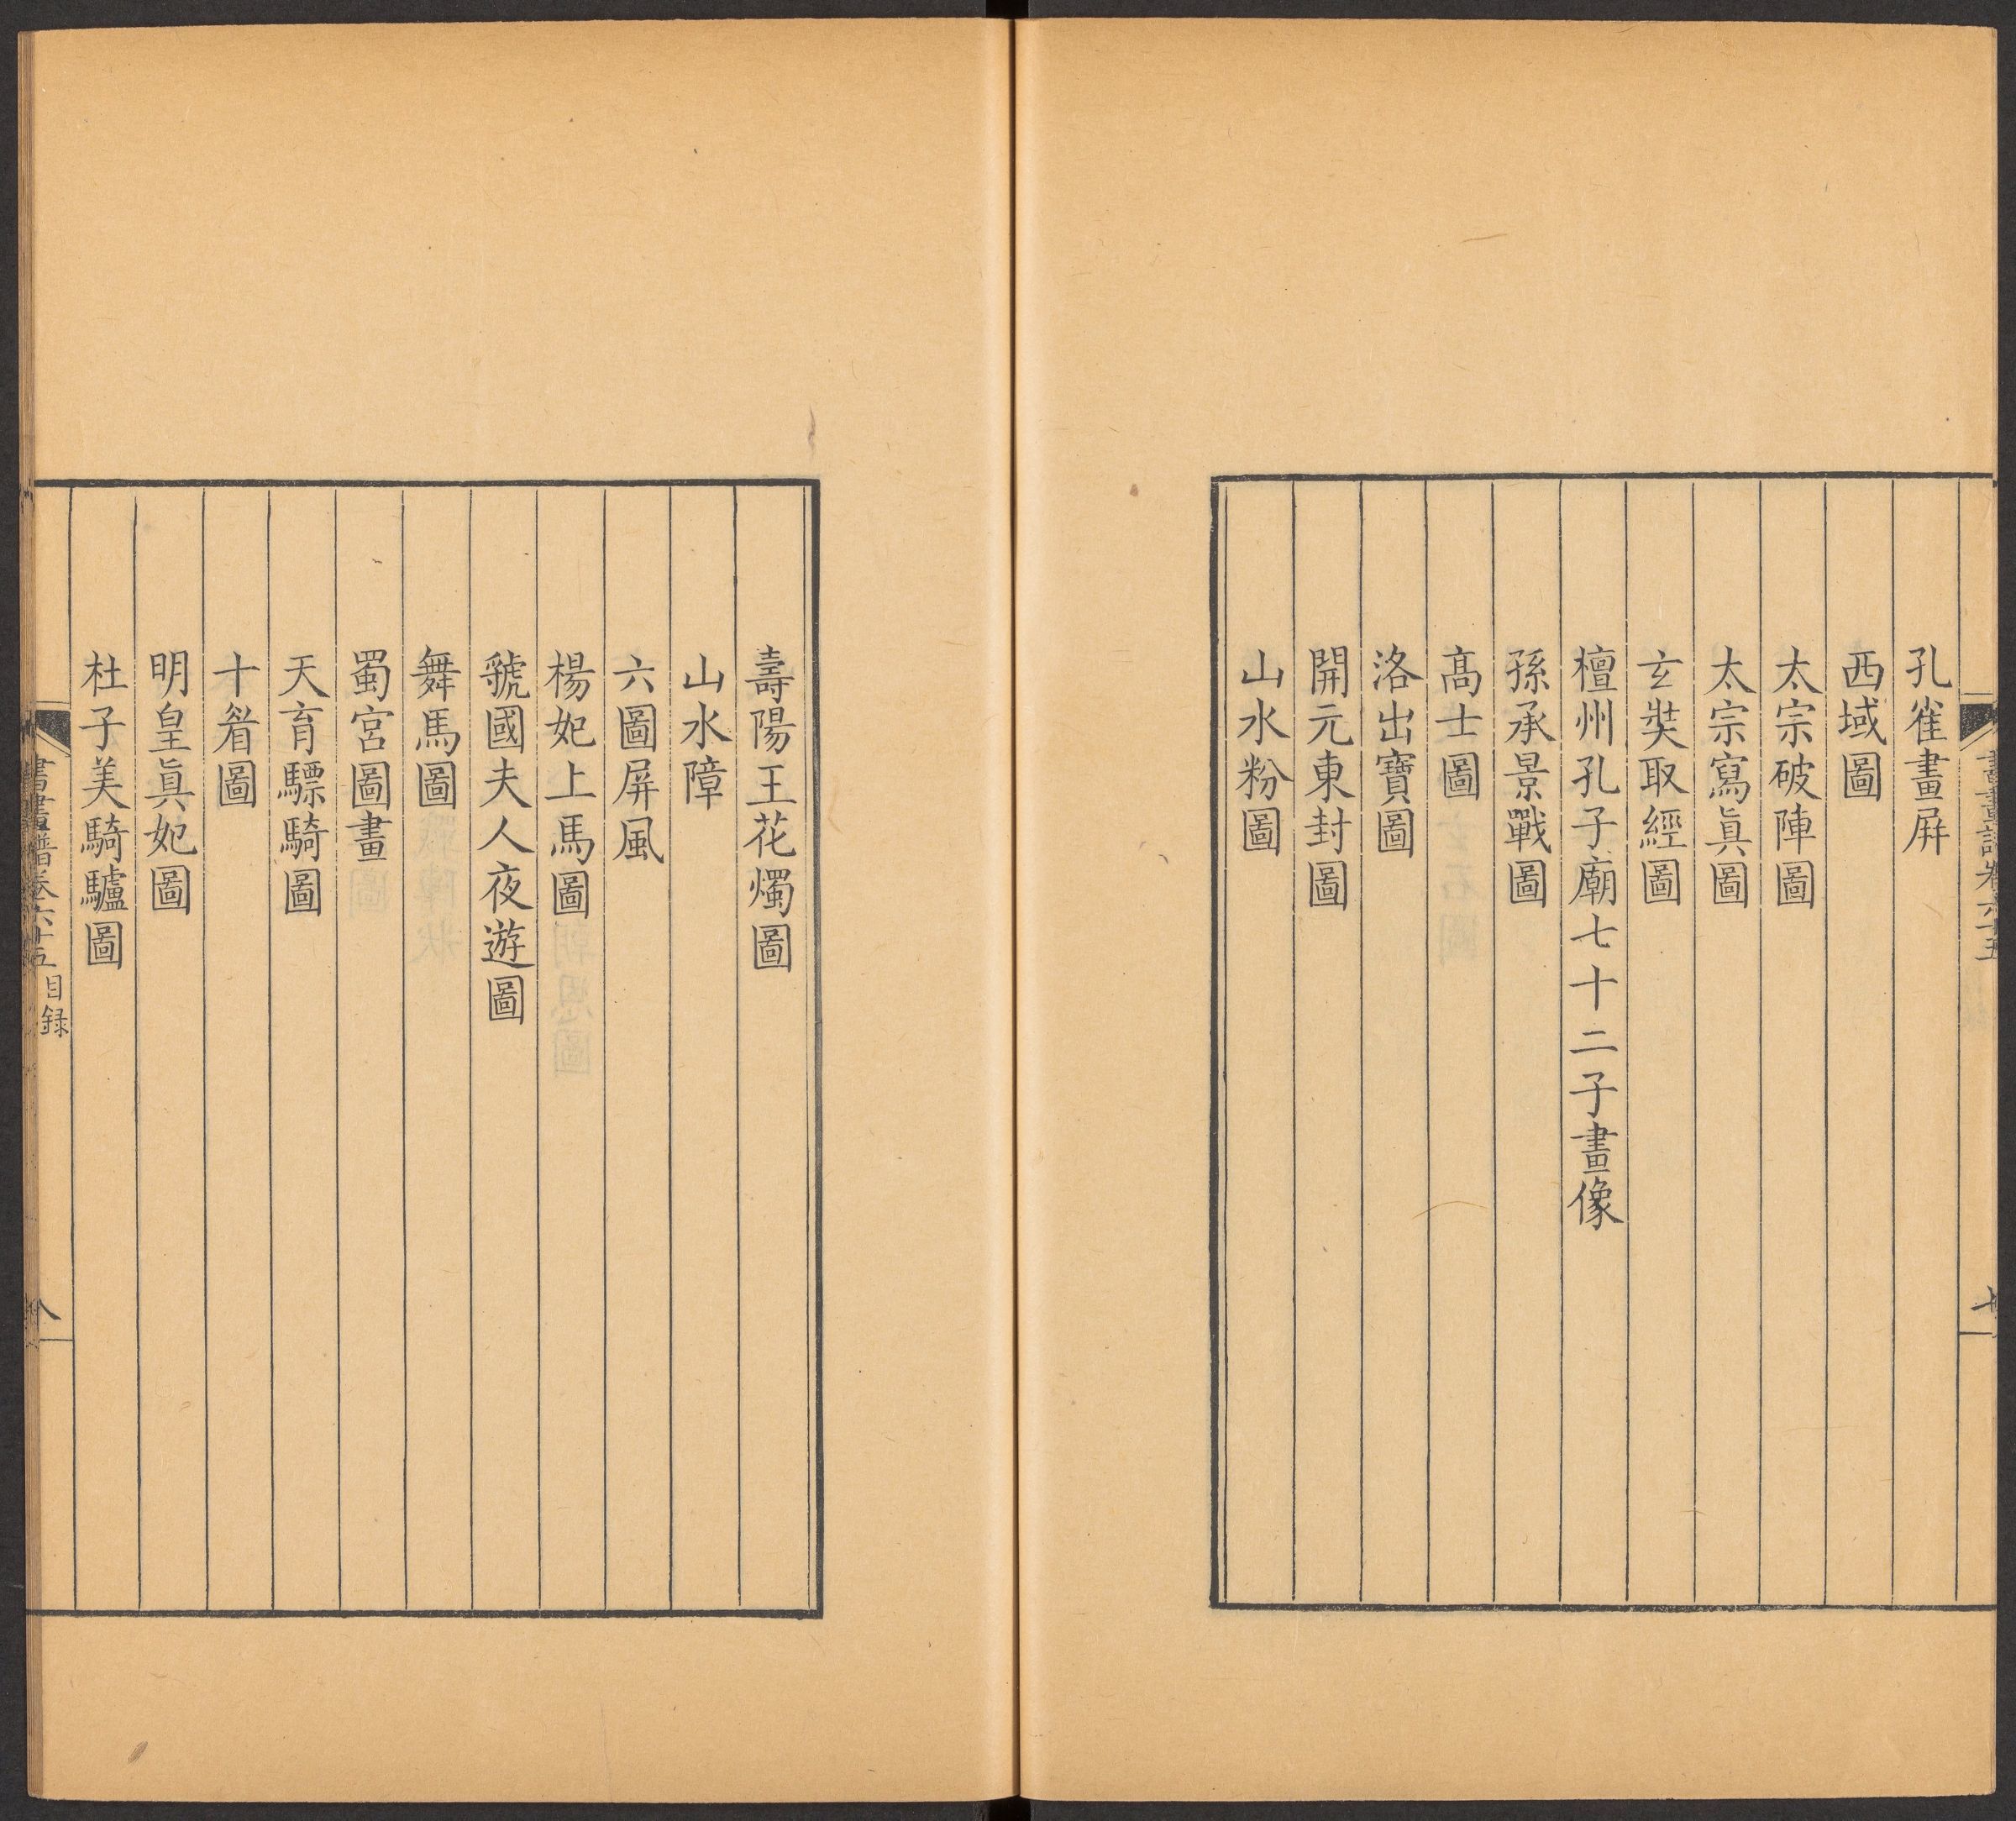 孔雀畫屏
西域圖
太宗破陣圖
太宗寫眞圖
玄奘取經圖
檀州孔子廟七十二子畫像
孫承景戰圖
高士圖
洛出寶圖
開元東封圖
山水粉圖
壽陽王花燭圖
山水障
六圖屏風
楊妃上馬圖
虢國夫人夜遊圖
舞馬圖
蜀宮圖畫
天育驃騎圖
十眉圖
明皇眞妃圖
杜子美騎驢圖
書畫譜卷六十五 目録
八